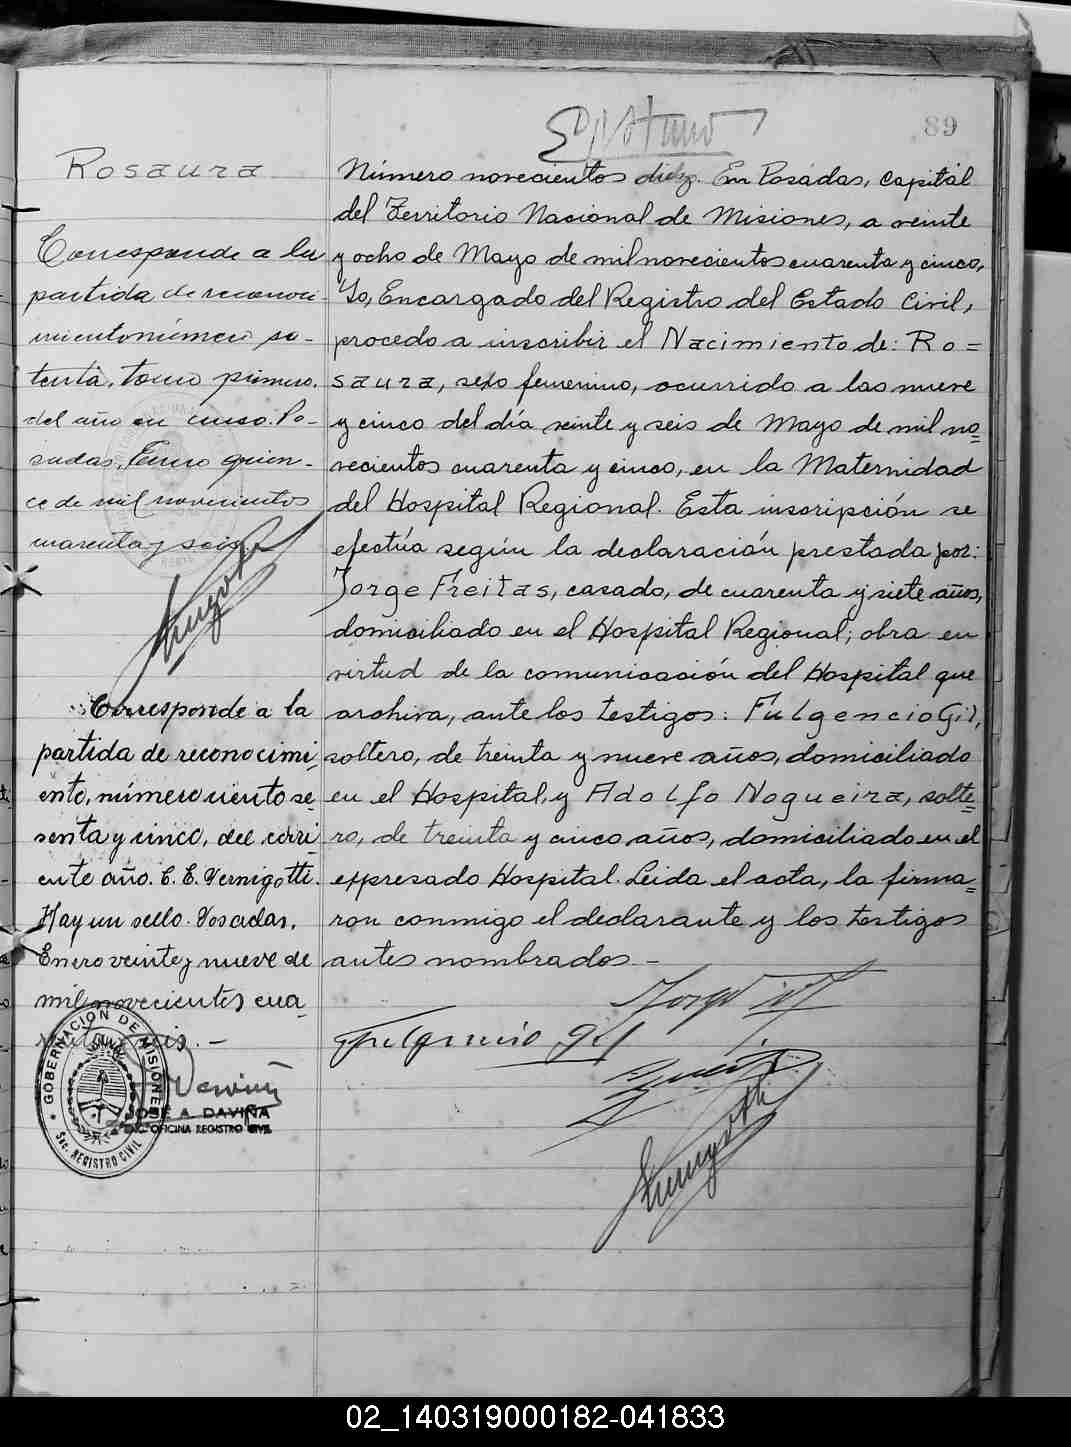 89
Rosaura
Corresponde a la
partida de reconoci-
miento número se-
tenta, tomo primero,
del año en curso. Po-
sadas, Enero quin-
ce de mil novecientos
cuarenta y seis.
Corresponde a la
partida de reconocimi-
ento, número ciento se-
senta y cinco, del corri-
ente año. C. E. Vernigotti.
Hay un sello. Posadas,
Enero veinte y nueve de
mil novecientos cua-
renta y seis.-
GOBERNACION DE MISIONES
Sec. REGISTRO CIVIL
JOSE A. DAVIÑA
ENC. OFICINA REGISTRO CIVIL
Número novecientos diez. En Posadas, Capital
del Territorio Nacional de Misiones, a veinte
y ocho de Mayo de mil novecientos cuarenta y cinco,
Yo, Encargado del Registro del Estado Civil,
procedo a inscribir el Nacimiento de: Ro=
saura, sexo femenino, ocurrido a las nueve
y cinco del día veinte y seis de Mayo de mil no=
vecientos cuarenta y cinco, en la Maternidad
del Hospital Regional. Esta inscripción se
efectúa según la declaración prestada por:
Jorge Freitas, casado, de cuarenta y siete años,
domiciliado en el Hospital Regional; obra en
virtud de la comunicación del Hospital que
archiva, ante los testigos: Fulgencio Gil,
soltero, de treinta y nueve años, domiciliado
en el Hospital, y Adolfo Nogueira, solte=
ro, de treinta y cinco años, domiciliado en el
expresado Hospital. Leida el acta, la firma=
ron conmigo el declarante y los testigos
antes nombrados.-
Fulgencio Gil
02_140319000182-041833